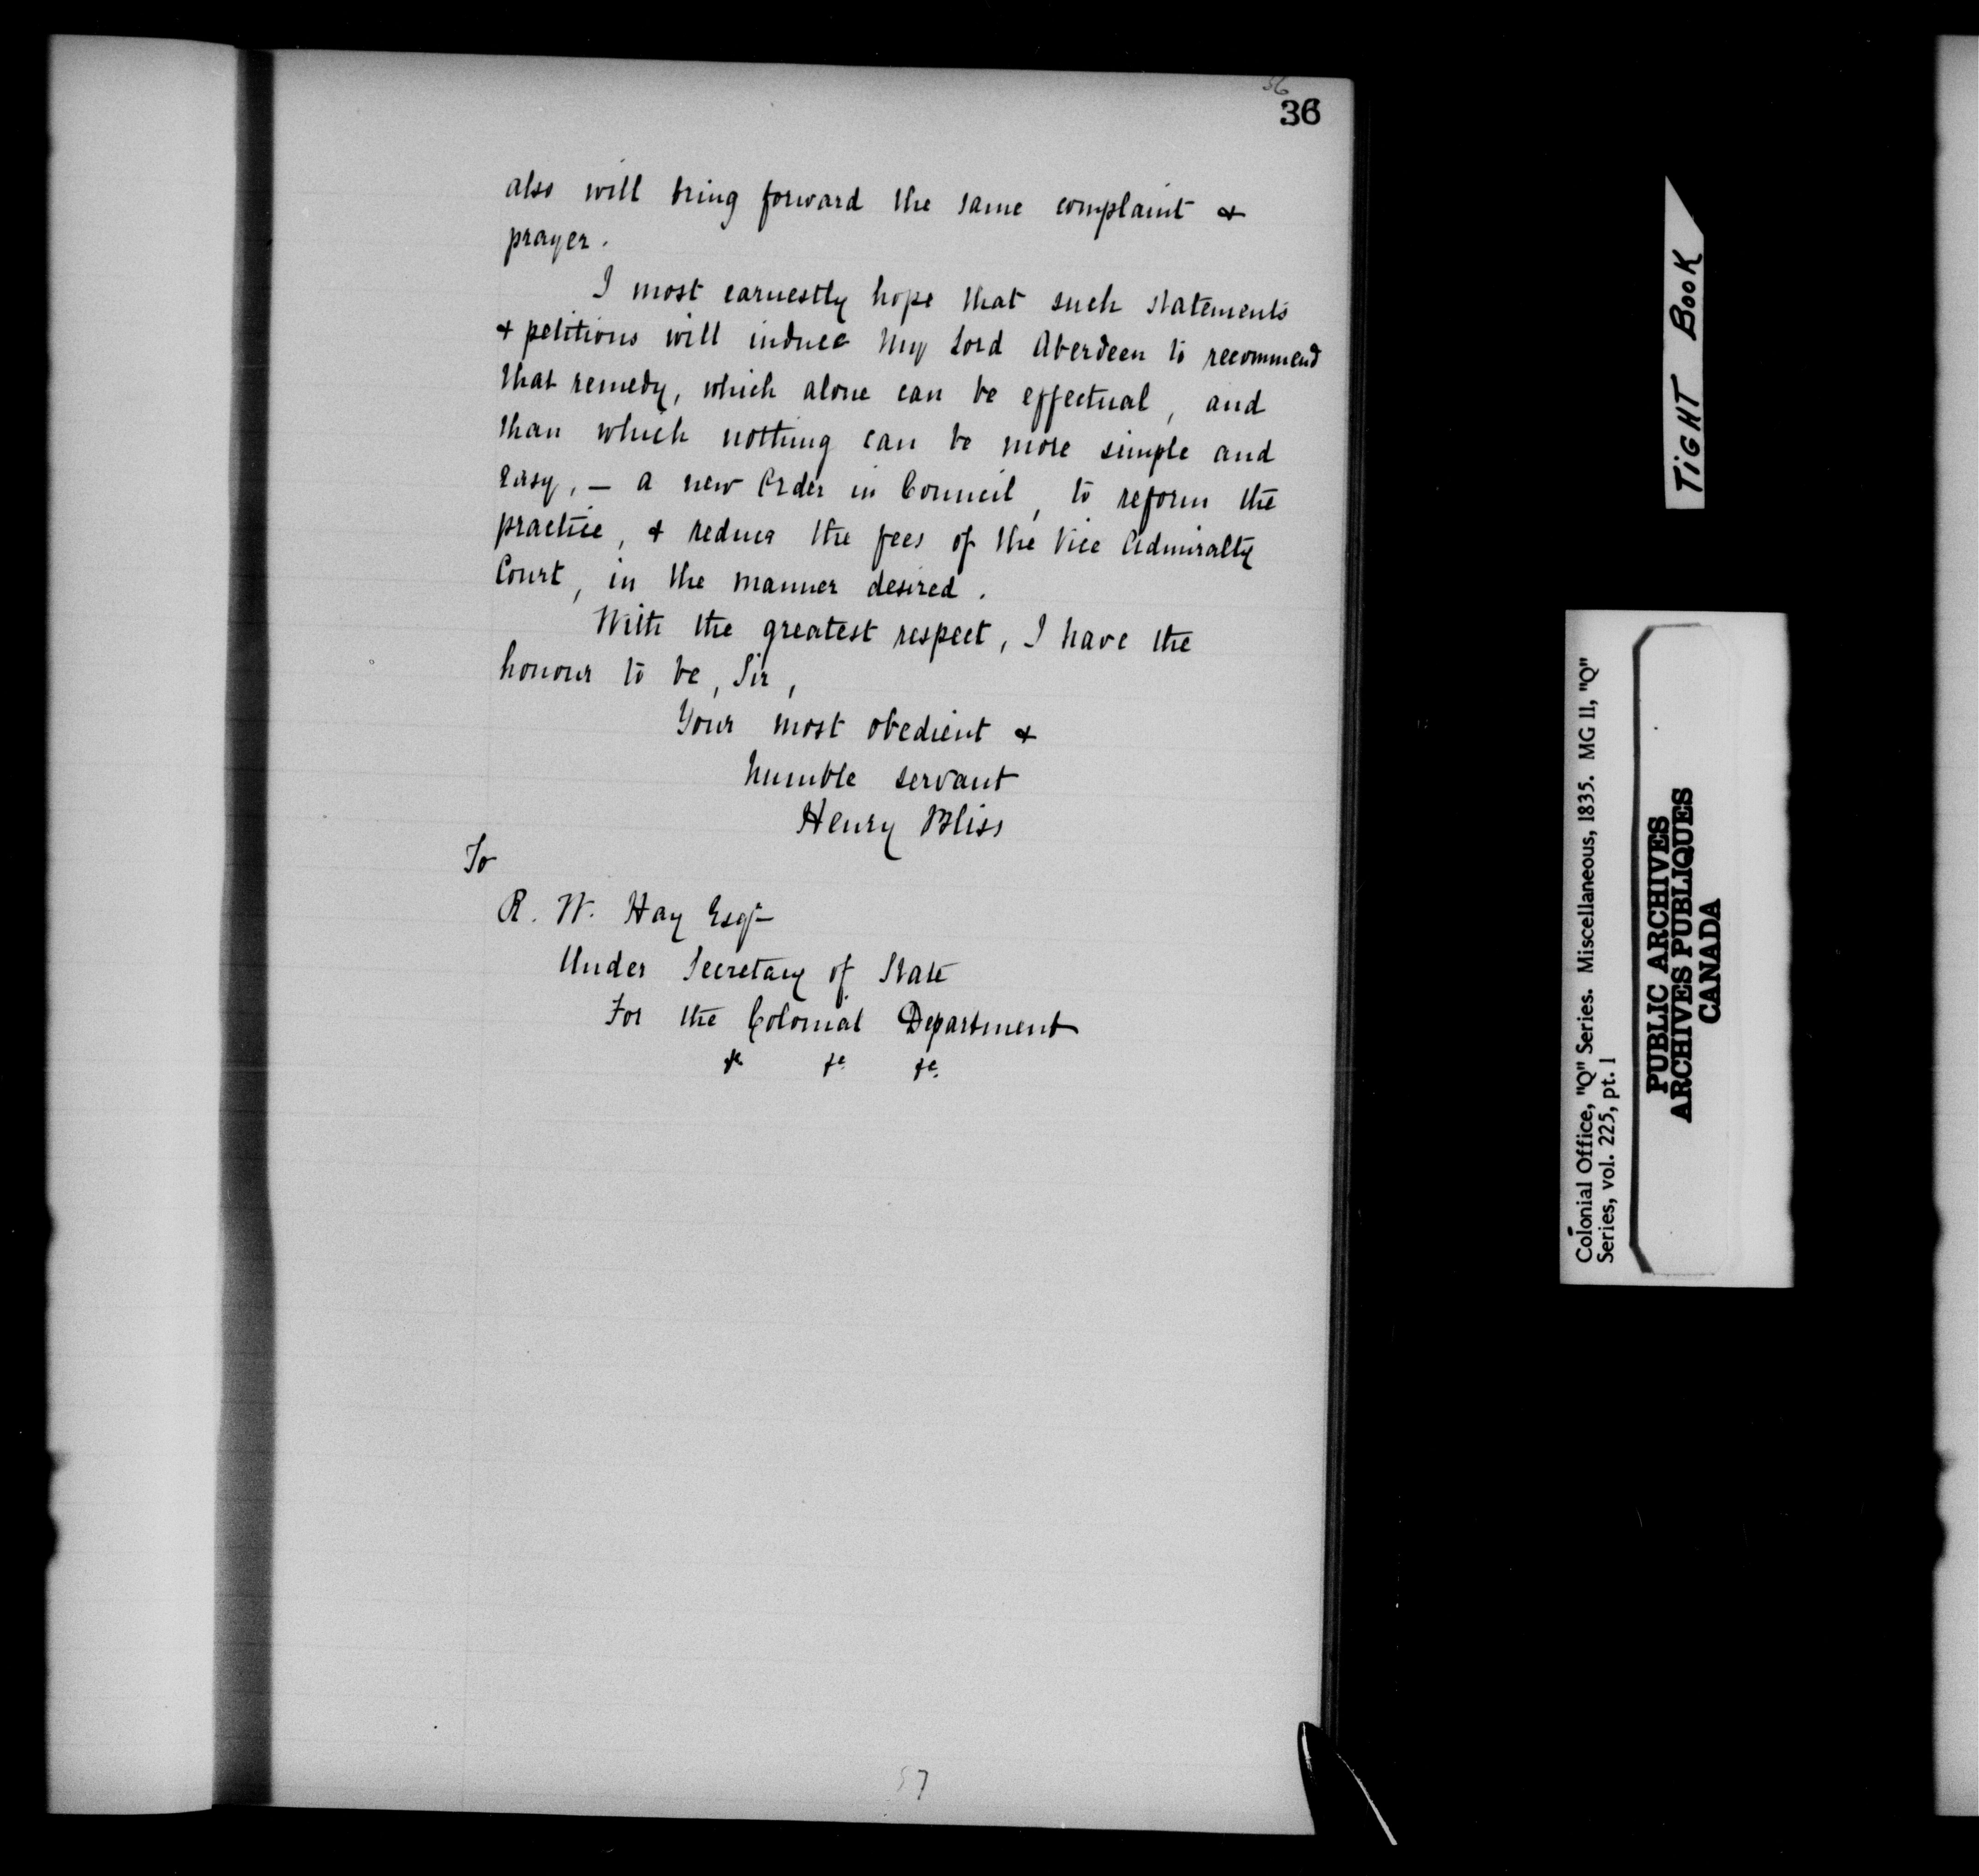 36
36
also will bring forward the same complaint &
prayer.
I most earnestly hope that such statements
& petitions will induce My Lord Aberdeen to recommend
that remedy, which alone can be effectual, and
than which nothing can be more simple and
easy, — a new Order in Council, to reform the
practice, & reduce the fees of the Vice Admiralty
Court, in the manner desired.
With the greatest respect, I have the
honour to be, Sir,
Your most obedient &
humble servant
Henry Bliss
To
R. W. Hay Esqr
Under Secretary of State
For the Colonial Department
&c &c. &c.
57
TIGHT BOOK
Colonial Office, "Q" Series. Miscellaneous, 1835. MG 11, "Q"
Series, vol. 225, pt. 1
PUBLIC ARCHIVES
ARCHIVES PUBLIQUES
CANADA